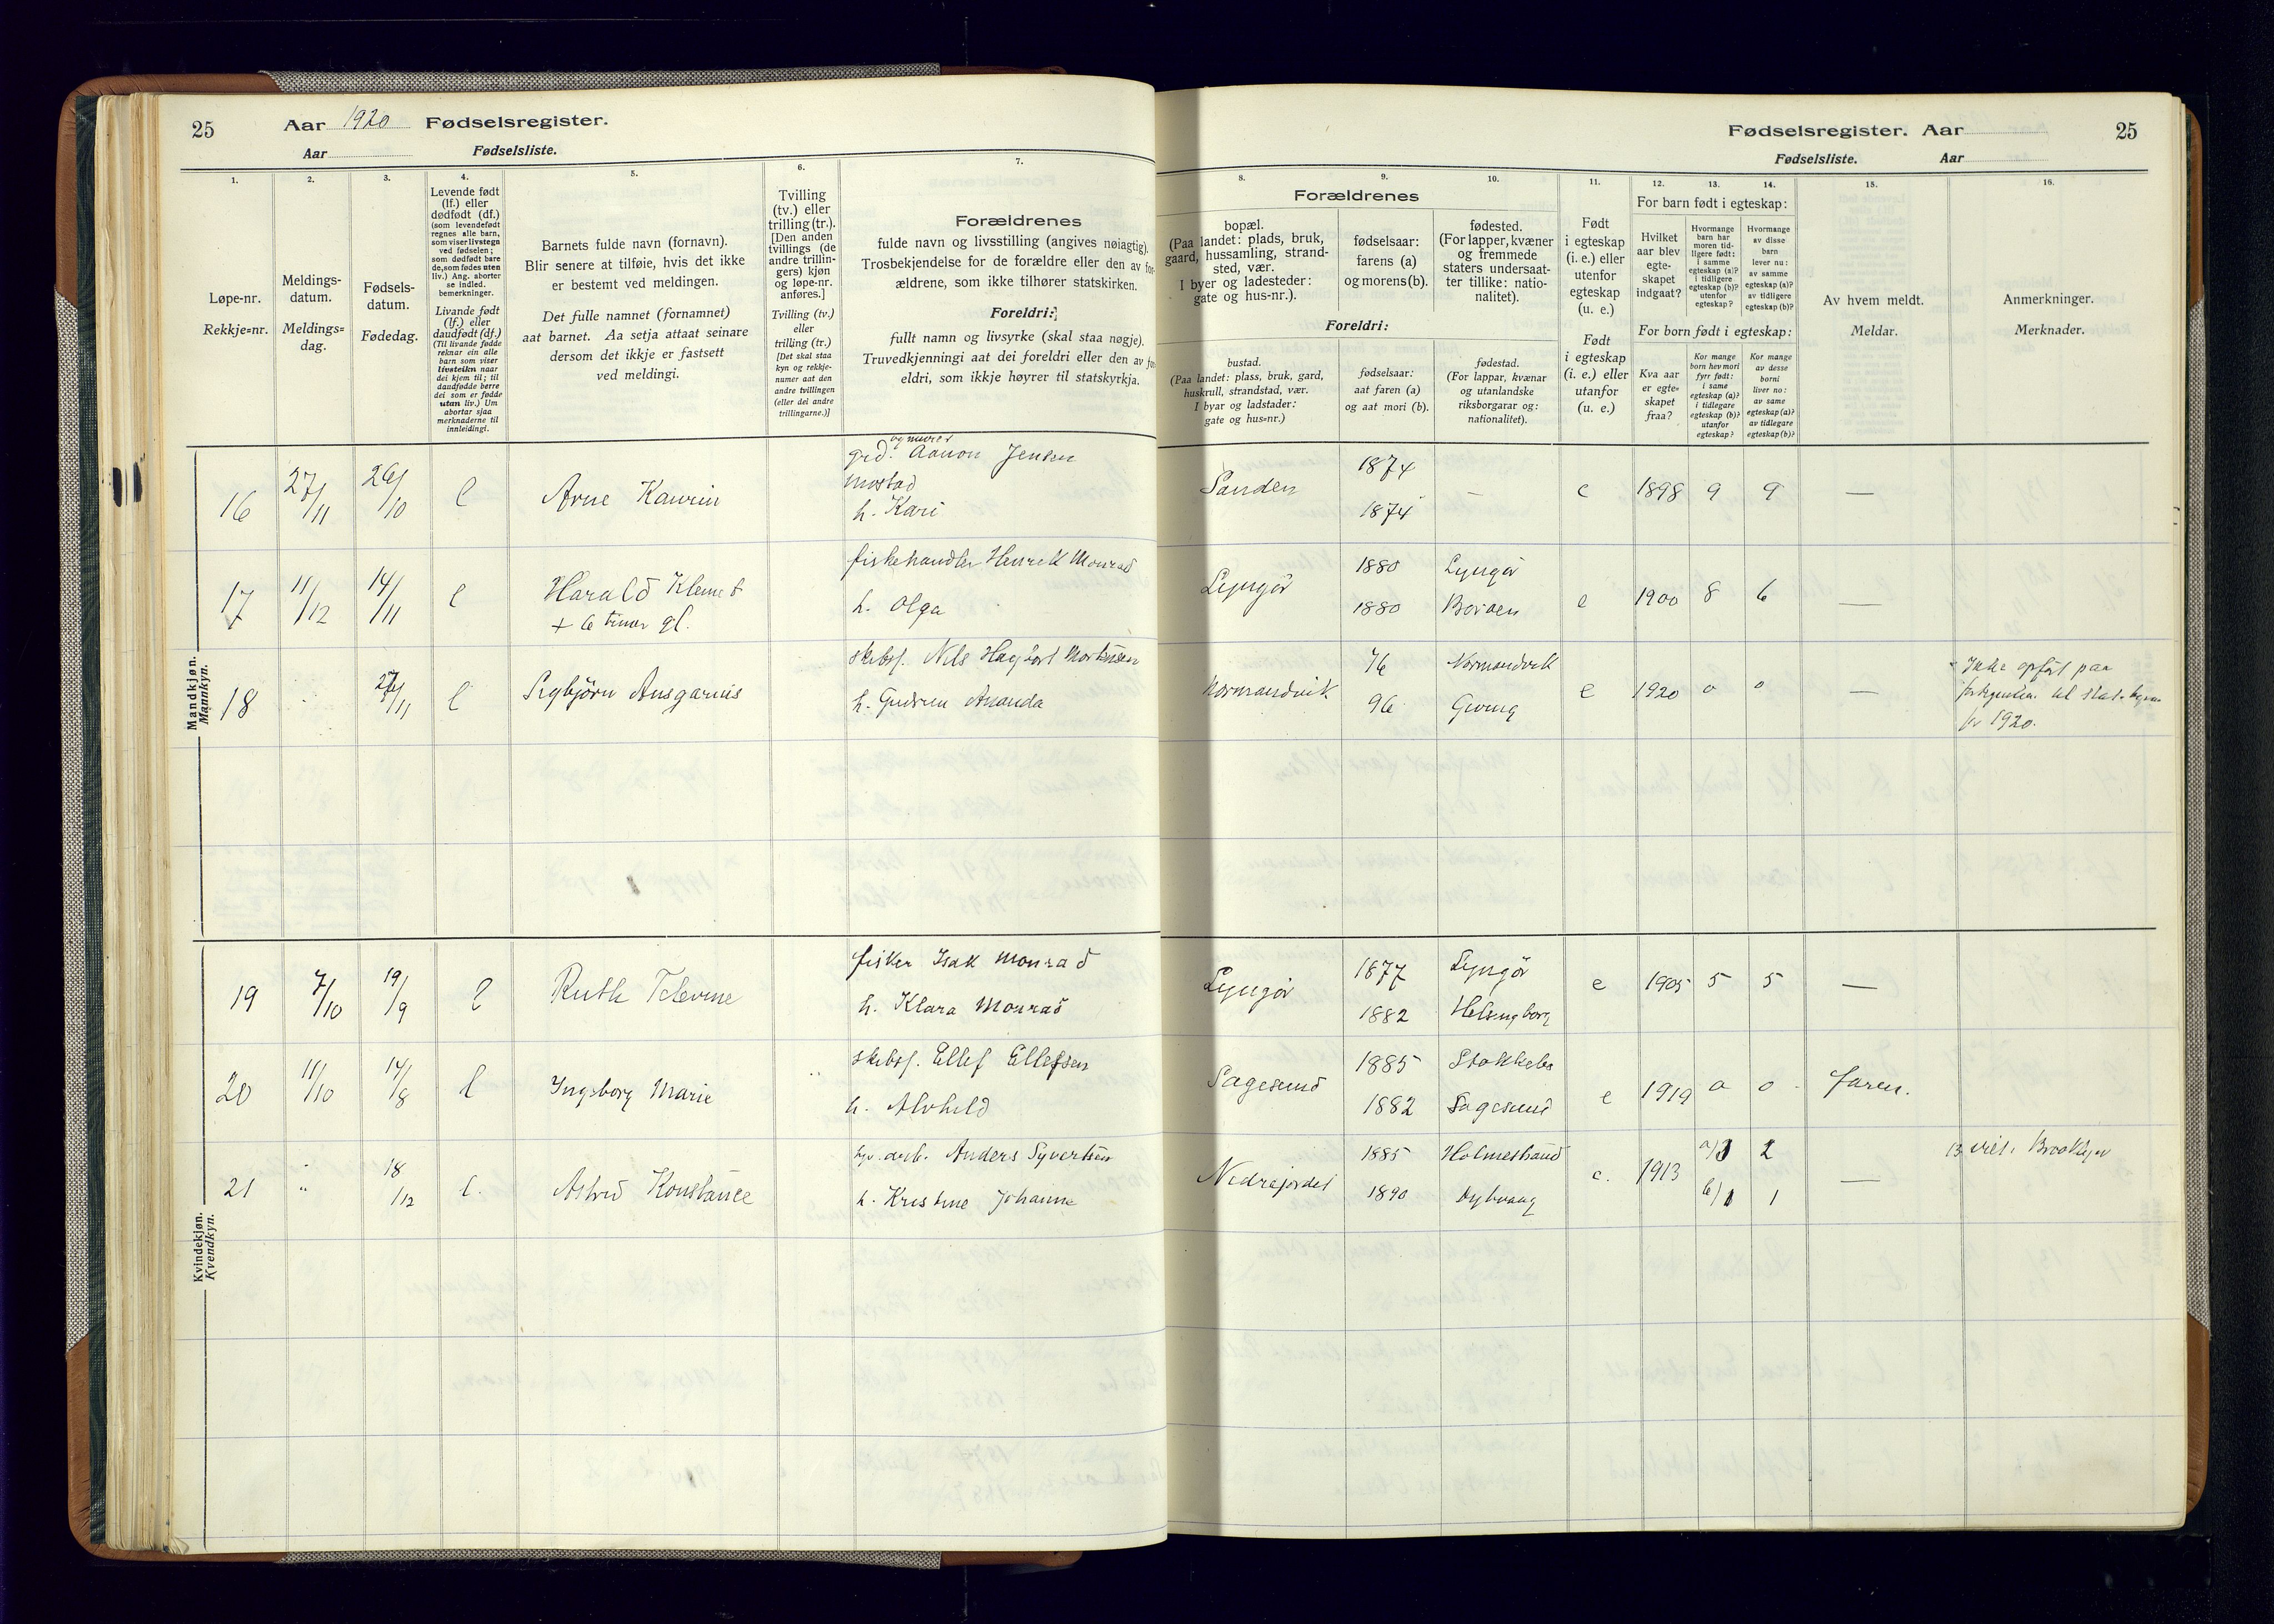 25 Aar 1920 Fødselsregister.
Aar Fødselsliste.
Fødselsregister. Aar 25
Fødselsliste. Aar
1. 2. 3. 4. 5. 6. 7.
Løpe-nr.
Rekkje=nr.
Meldings-
datum.
Meldings=
dag.
Fødsels-
datum.
Fødedag.
Levende født
(lf.) eller
dødfødt (df.)
(som levendefødt
regnes alle barn,
som viser livstegn
ved fødselen;
som dødfødt bare
de, som fødes uten
liv.) Ang. aborter
se indled.
bemerkninger.
Livande født
(lf.) eller
daudfødt (df.)
(Til livande fødde
reknar ein alle
barn som viser
livsteikn naar
dei kjem til; til
daudfødde berre
dei som er fødde
utan liv.) Um
abortar sjaa
merknaderne til
innleidingi.
Barnets fulde navn (fornavn).
Blir senere at tilføie, hvis det ikke
er bestemt ved meldingen.
Det fulle namnet (fornamnet)
aat barnet. Aa setja attaat seinare
dersom det ikkje er fastsett
ved meldingi.
Tvilling
(tv.) eller
trilling (tr.).
[Den anden
tvillings (de
andre trillin-
gers) kjøn
og løpe-nr.
anføres.]
Tvilling (tv.)
eller
trilling (tr.)
[Det skal staa
kyn og rekkje-
numer aat den
andre tvillingen
(eller dei andre
trillingarne.)]
Forældrenes
fulde navn og livsstilling (angives nøiagtig).
Trosbekjendelse for de forældre eller den av for-
ældrene, som ikke tilhører statskirken.
Foreldri:
fullt namn og livsyrke (skal staa nøgje).
Truvedkjenningi aat dei foreldri eller den av for-
eldri, som ikkje høyrer til statskyrkja.
8. 9. 10. 11. 12. 13. 14. 15. 16.
Forældrenes
bopæl.
(Paa landet: plads, bruk,
gaard, hussamling, strand-
sted, vær.
I byer og ladesteder:
gate og hus-nr.).
fødselsaar:
farens (a)
og morens (b).
fødested.
(For lapper, kvæner
og fremmede
staters undersaat-
ter tillike: natio-
nalitet).
Foreldri:
bustad.
(Paa landet: plass, bruk, gard,
huskrull, strandstad, vær.
I byar og ladstader:
gate og hus=nr.)
fødselsaar:
aat faren (a)
og aat mori (b).
fødestad.
(For lappar, kvænar
og utanlandske
riksborgarar og:
nationalitet).
Født
i egteskap
(i. e.) eller
utenfor
egteskap
(u. e.)
Født
i egteskap
(i. e.) eller
utanfor
(u. e.)
For barn født i egteskap:
Hvilket
aar blev
egte-
skapet
indgaat?
Hvormange
barn har
moren tid-
ligere født:
i samme
egteskap (a)?
i tidligere
egteskap (b)?
utenfor
egteskap?
Hvormange
av disse
barn
lever nu:
av samme
egteskap (a)?
av tidligere
egteskap (b)?
For born født i egteskap:
Kva aar
er egte=
skapet
fraa?
Kor mange
born hev mori
fyrr født:
i same
egteskap (a)?
i tidlegare
egteskap (b)?
utanfor
egteskap?
Kor mange
av desse
borni
liver no:
av same
egteskap (a)?
av tidlegare
egteskap (b)?
Av hvem meldt.
Meldar.
Anmerkninger.
Merknader.
Mandkjøn.
Mannkyn.
16 27/11 26/10 l Arne Kaurin grd. og murer Aanon Jensen
Mostad
h. Kari
Sanden 1874 1874 — e 1898 9 9 —
17 11/12 14/11 l Harald Klemet fiskehandler Henrik Monrad
+ 6 timer gl. h. Olga
Lyngör 1880 Lyngör e 1900 8 6 —
1880 Boröen
18 27/11 l Sigbjörn Ansgarius skibsf. Nils Hagbart Mortensen
h. Gudrun Amanda
Normandvik 76 Normandvik e 1920 0 0 —
96 Gjeving
Ikke opfört paa
til stat.
for 1920.
Kvindekjøn.
Kvendkyn.
19 7/10 19/9 l Ruth Televine fisker Isak Monrad
h. Klara Monrad
Lyngör 1877 Lyngör e 1905 5 5 —
1882 Helsingborg
20 11/10 14/8 l Ingeborg Marie skibsf. Ellef Ellefsen
h. Alvhild
Sagesund 1885 Stokkebo e 1919 0 0 faren.
1882 Sagesund
21 " 18/12 l. Astrid Konstance arb. Anders Syvertsen
h. Kristine Johanne
Nedrejordet 1885 Holmestrand e. 1913 a) 3 2 —
1890 Dybvaag b) 1 1
viet i Brooklyn